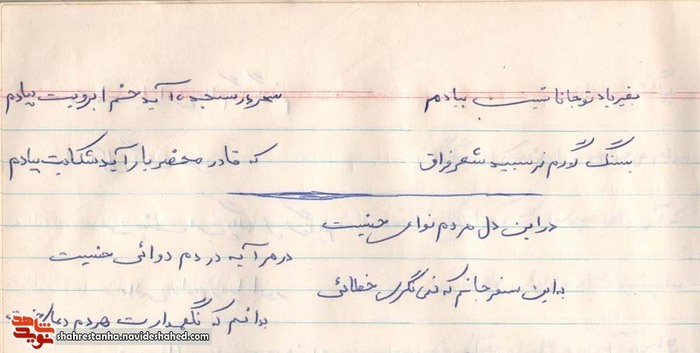 بغیر یاد تو جانا نیست بیادم
سحر در سجده آید خم ابرویت بیادم
بسنگ گورم نویسید شعر فراق
که قادر محضر یار آید شکایت بیادم
در این دل مردم نوای جنیست
در مرا به دردم دوائی جنیست
به این سفر جانم که نمی نگری خطائی
بدانم که نگهدارت هردم دعای
shahrestanha.navideshahed.com